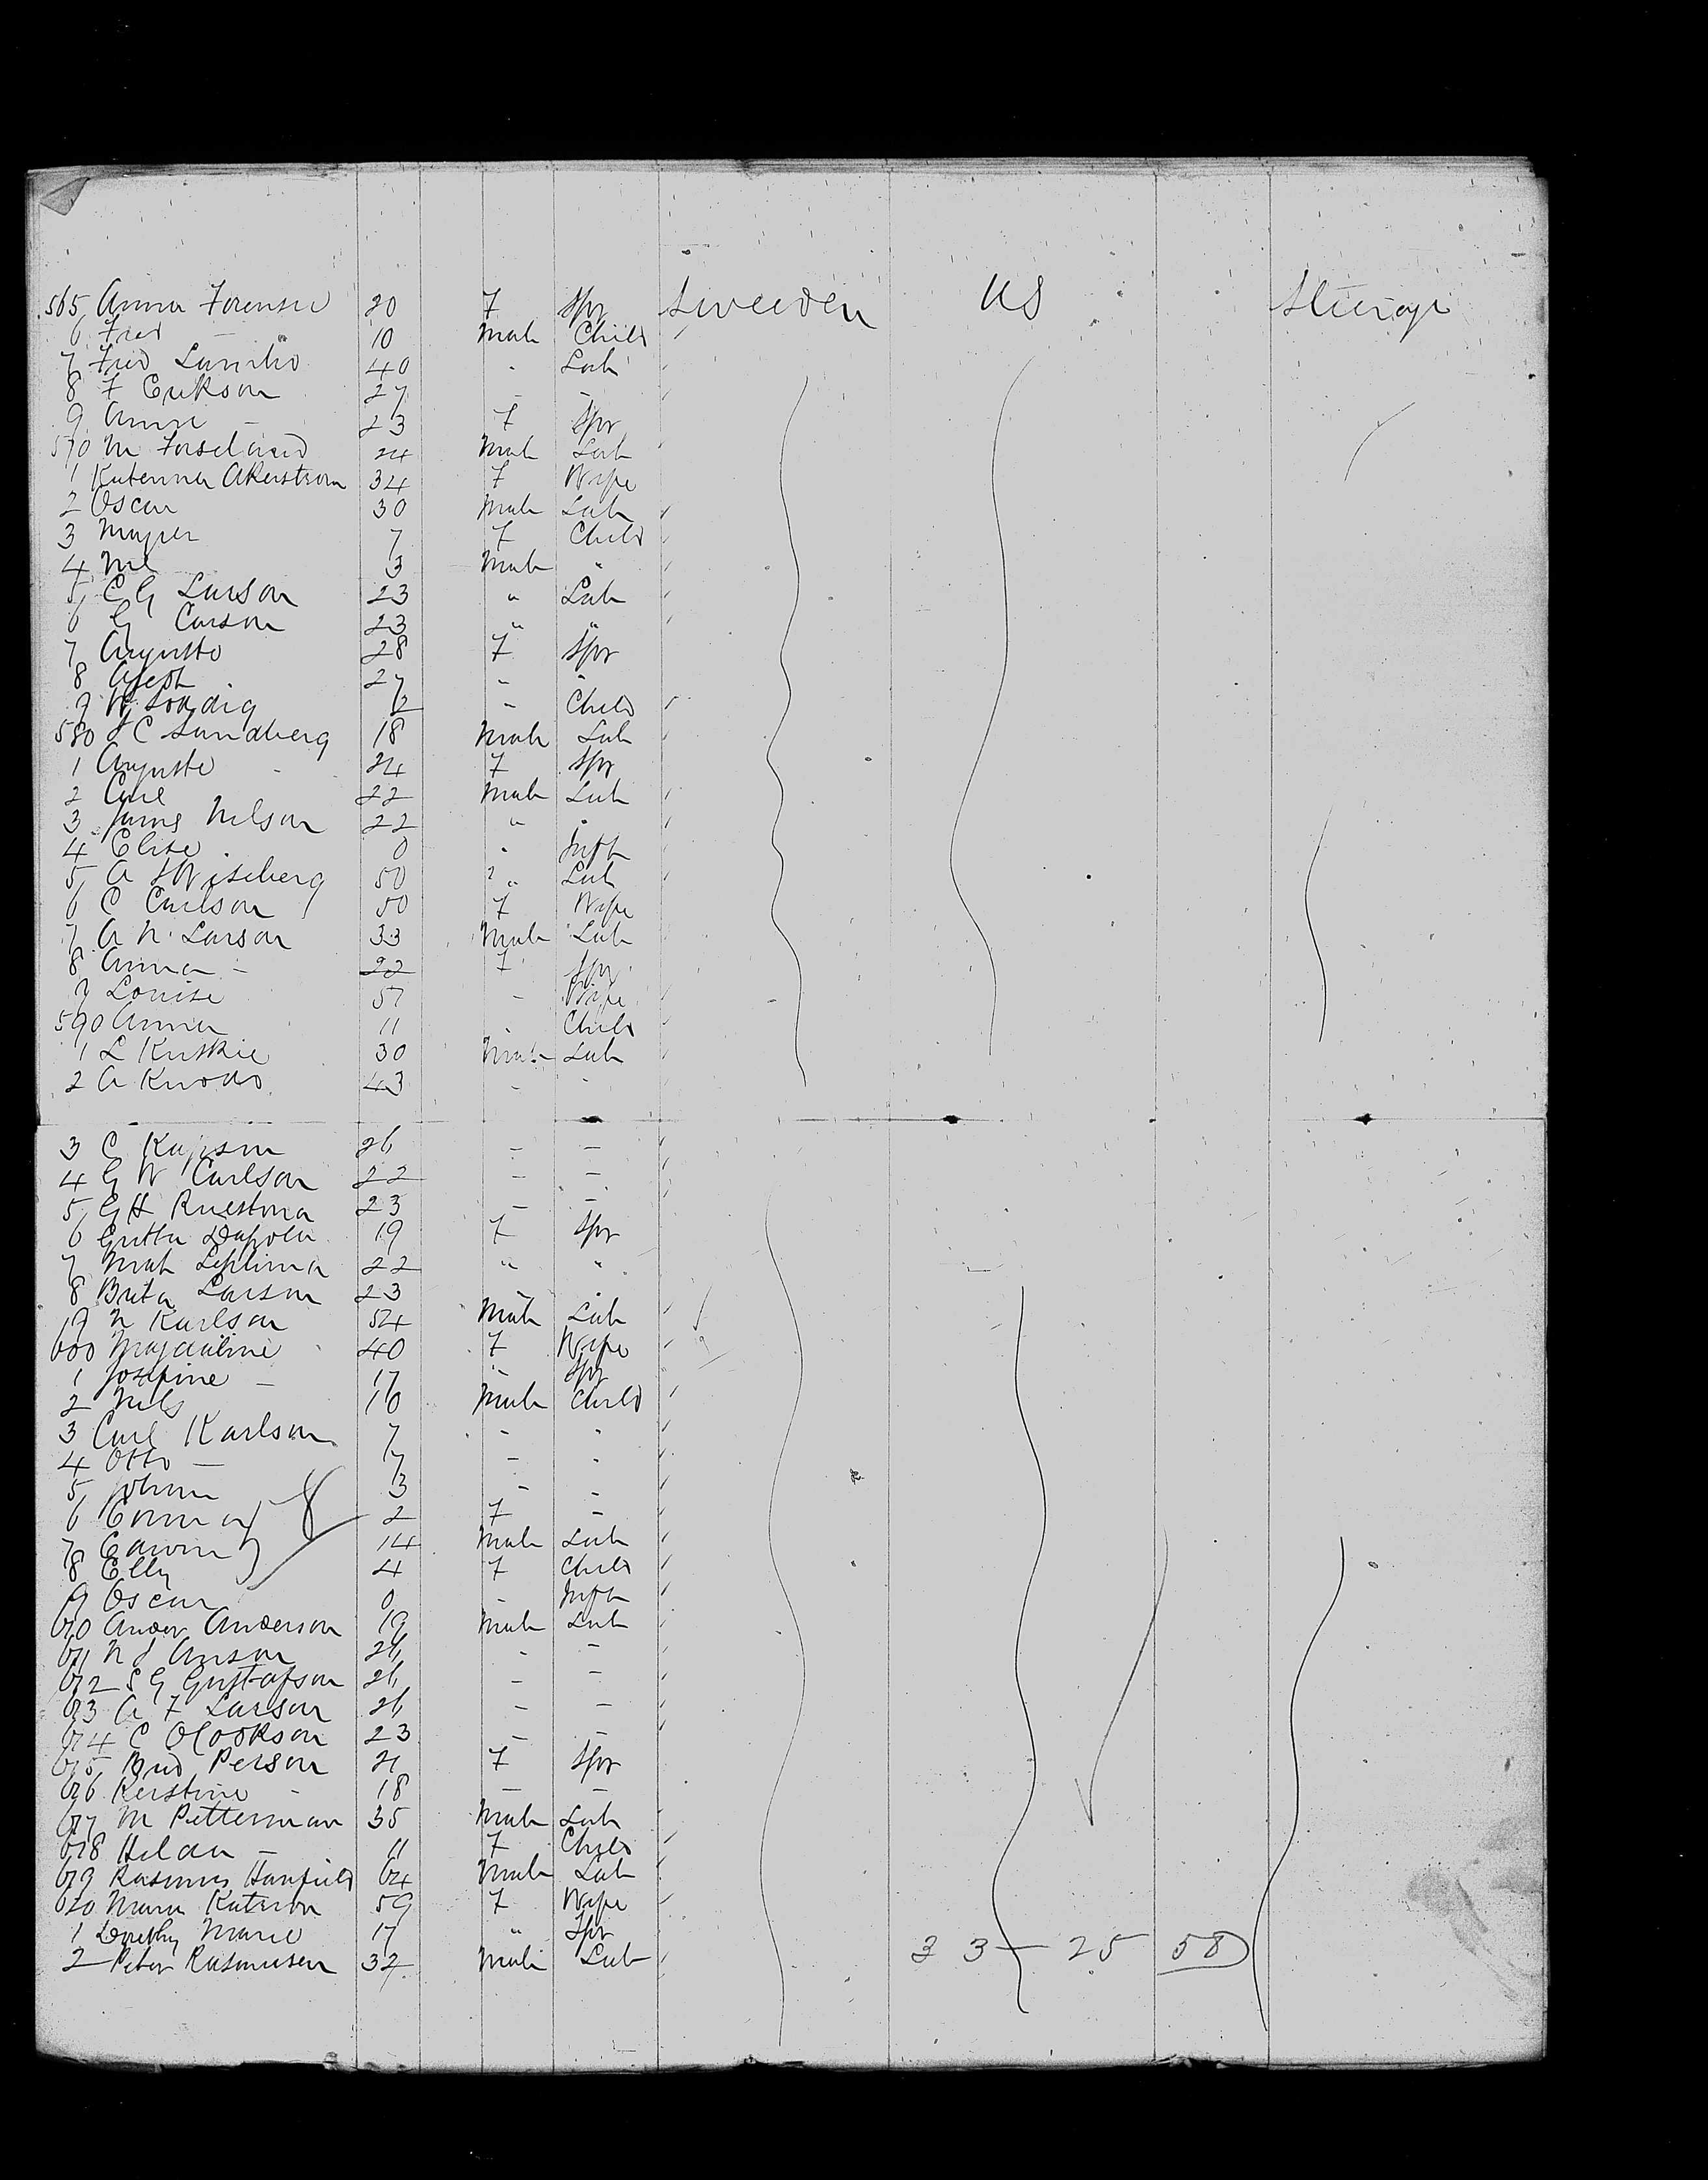 565 Anna Forensie 20 F Spr Sweeden US Steerage
6 Fred — 10 Male Child
7 Fred 40 . Lab
8 F Erikson 27 - -
9 Anni — 23 F Spr
570 M 24 Male Lab
1 Katerina Akerstrom 34 F Wife
2 Oscar 30 Male Lab
3 7 F Child
4 3 Male "
5 C G Larson 23 " Lab
6 G Carson 23 " "
7 Augusta 28 F Spr
8 27 - "
9 - Child
580 J C Sundberg 18 Male Lab
1 Auguste - 24 F Spr
2 Carl 22 Male Lab
3 James Nelson 22 " "
4 Elise 0 " Inft
5 A 50 " Lab
6 C Carlson 50 F Wife
7 A N Larson 33 Male Lab
8 Anna - 22 F Spr
9 Louise 57 - Wife
590 Anna 11 . Child
1 L Kuskie 30 Male Lab
2 A 43 - -
3 C 26 - -
4 G W Carlson 22 - -
5 G H 23 - -
6 19 F Spr
7 22 " "
8 Brita Larson 23
9 N Karlson 54 Male Lab
600 Magdaline 40 F Wife
1 Josefine — 17 " Spr
2 Nils 10 Male Child
3 Carl Karlson 7 - "
4 Otto — 7 - "
5 Johan 3 - -
6 Emma 2 F -
7 Edwin 14 Male Lab
8 Elly 4 F Child
9 Oscar 0 - Inft
610 Ander Anderson 19 Male Lab
611 N J Anson 26 - -
612 S G Gustafson 26 - -
613 A F Larson 26 - -
614 C 23 - -
615 Person 21 F Spr
616 Kerstine - 18 — —
617 M Petterman 35 Male Lab
618 Hilda — 11 F Child
619 Rasmus Hanfield 64 Male Lab
620 Maria Katrina 59 F Wife
1 Dorethy Marie 17 " Spr
2 Peter Rasmusen 32 Male Lab 33 — 25 58